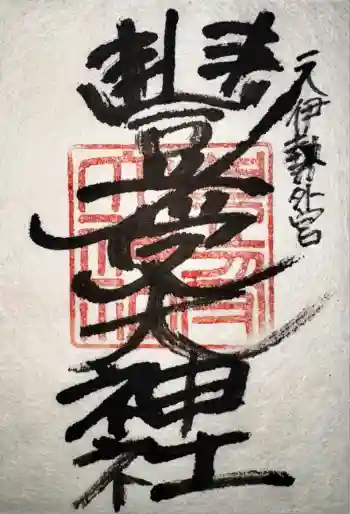 元伊勢外宮
豐受大神社